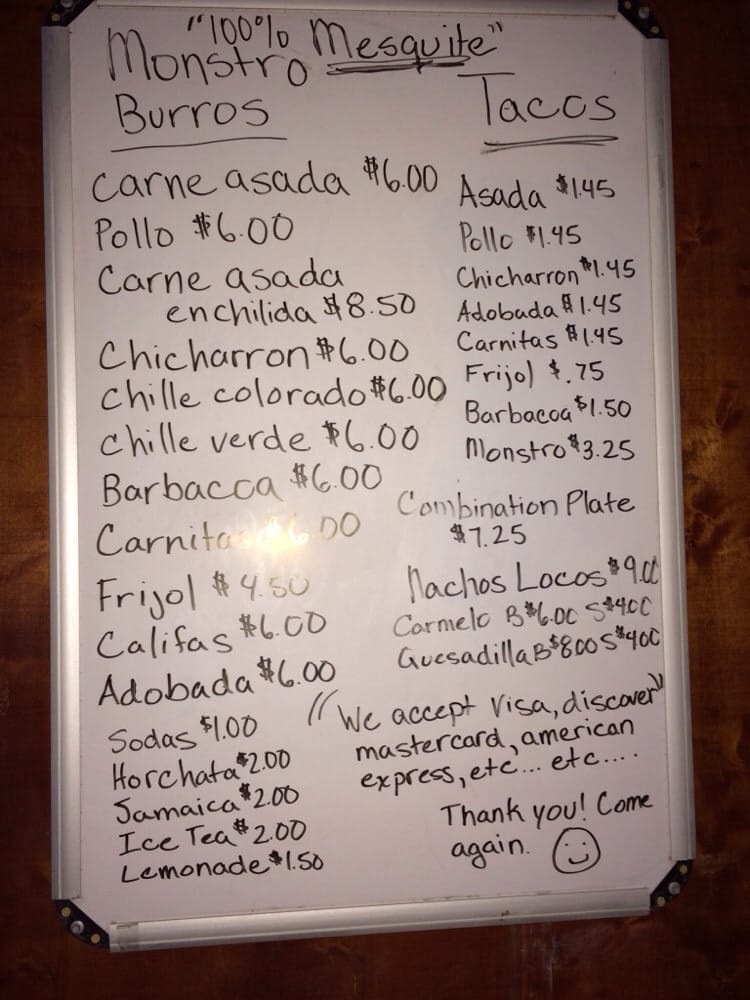 "100% Mesquite"
Monstro
Burros
Carne asada $6.00
Pollo $6.00
Carne asada
enchilida $8.50
Chicharron $6.00
Chille colorado $6.00
Chille verde $6.00
Barbacca $6.00
Carnitas $6.00
Frijol $4.50
Califas $6.00
Adobada $6.00
Sodas $1.00
Horchata $2.00
Jamaica $2.00
Ice Tea $2.00
Lemonade $1.50
Tacos
Asada $1.45
Pollo $1.45
Chicharron $1.45
Adobada $1.45
Carnitas $1.45
Frijol $.75
Barbacoa $1.50
Monstro $3.25
Combination Plate
$7.25
Nachos Locos $9.00
Carmelo B $6.00 S $4.00
Quesadilla B $8.00 S $4.00
"We accept Visa, discover"
mastercard, american
express, etc... etc....
Thank you! Come
again.